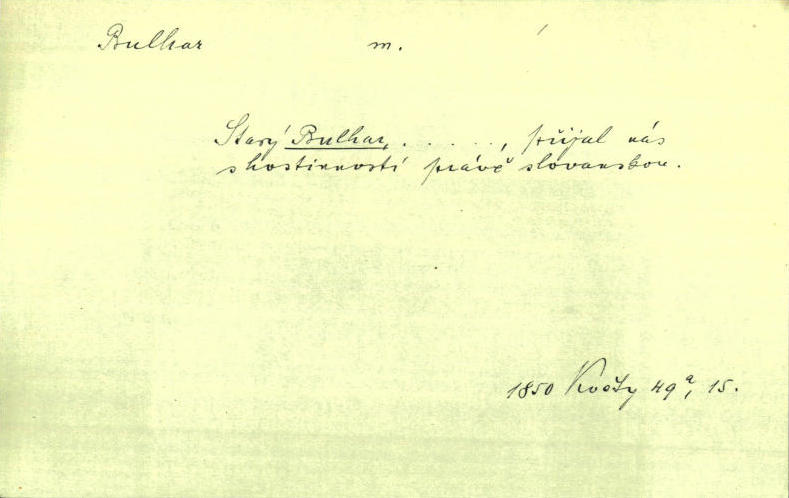 Bulhar m.
Starý Bulhar, . . . . ., přijal nás
s hostinností právě slovanskou.
1850 Květy 49a, 15.